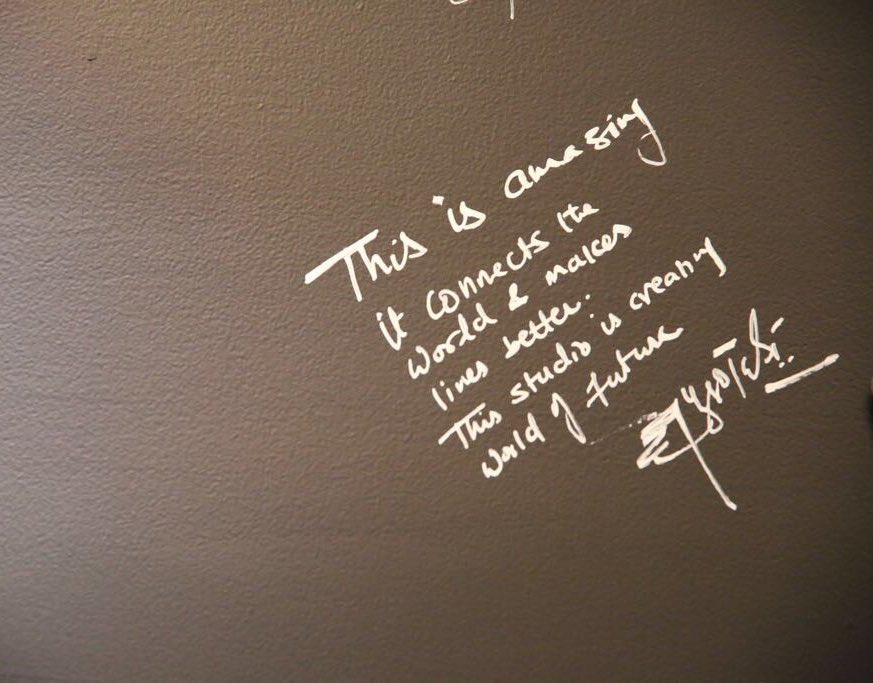 This is amazing
it connects the
world & makes
lives better.
This studio is creating
world of future